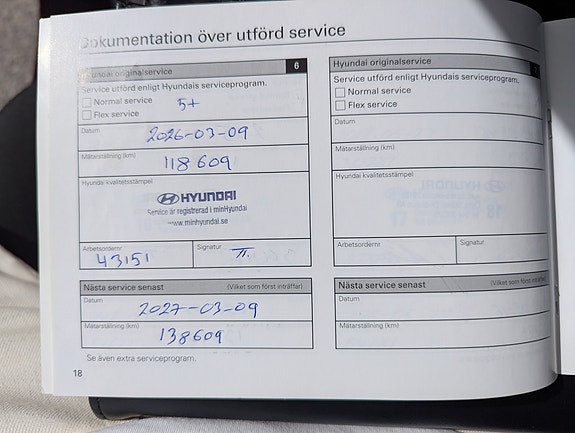 Dokumentation över utförd service
Hyundai originalservice 6
Service utförd enligt Hyundais serviceprogram.
Normal service
5+
Flex service
Datum
2026-03-09
Mätarställning (km)
118 609
Hyundai kvalitetsstämpel
HYUNDAI
Service är registrerad i minHyundai
www.minhyundai.se
Arbetsordernr
43151
Signatur
Nästa service senast (Vilket som först inträffar)
Datum
2027-03-09
Mätarställning (km)
138609
Se även extra serviceprogram.
18
Hyundai originalservice
Service utförd enligt Hyundais serviceprogram.
Normal service
Flex service
Datum
Mätarställning (km)
Hyundai kvalitetsstämpel
Arbetsordernr
Signatur
Nästa service senast (Vilket som först inträffar)
Datum
Mätarställning (km)